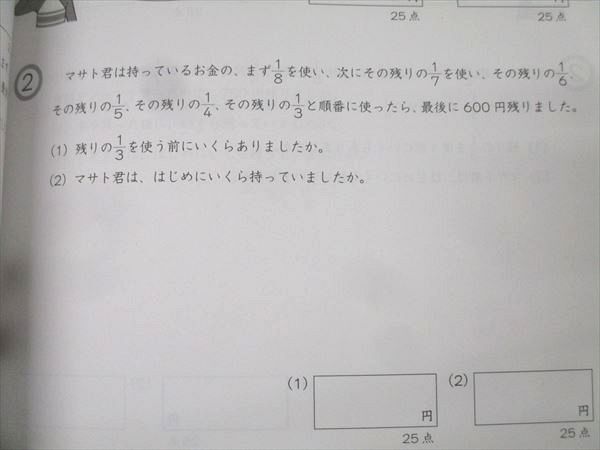 25点
25点
2 マサト君は持っているお金の、まず1/8を使い、次にその残りの1/7を使い、その残りの1/6、
その残りの1/5、その残りの1/4、その残りの1/3と順番に使ったら、最後に600円残りました。
(1) 残りの1/3を使う前にいくらありましたか。
(2) マサト君は、はじめにいくら持っていましたか。
(1) 円 (2) 円
25点 25点